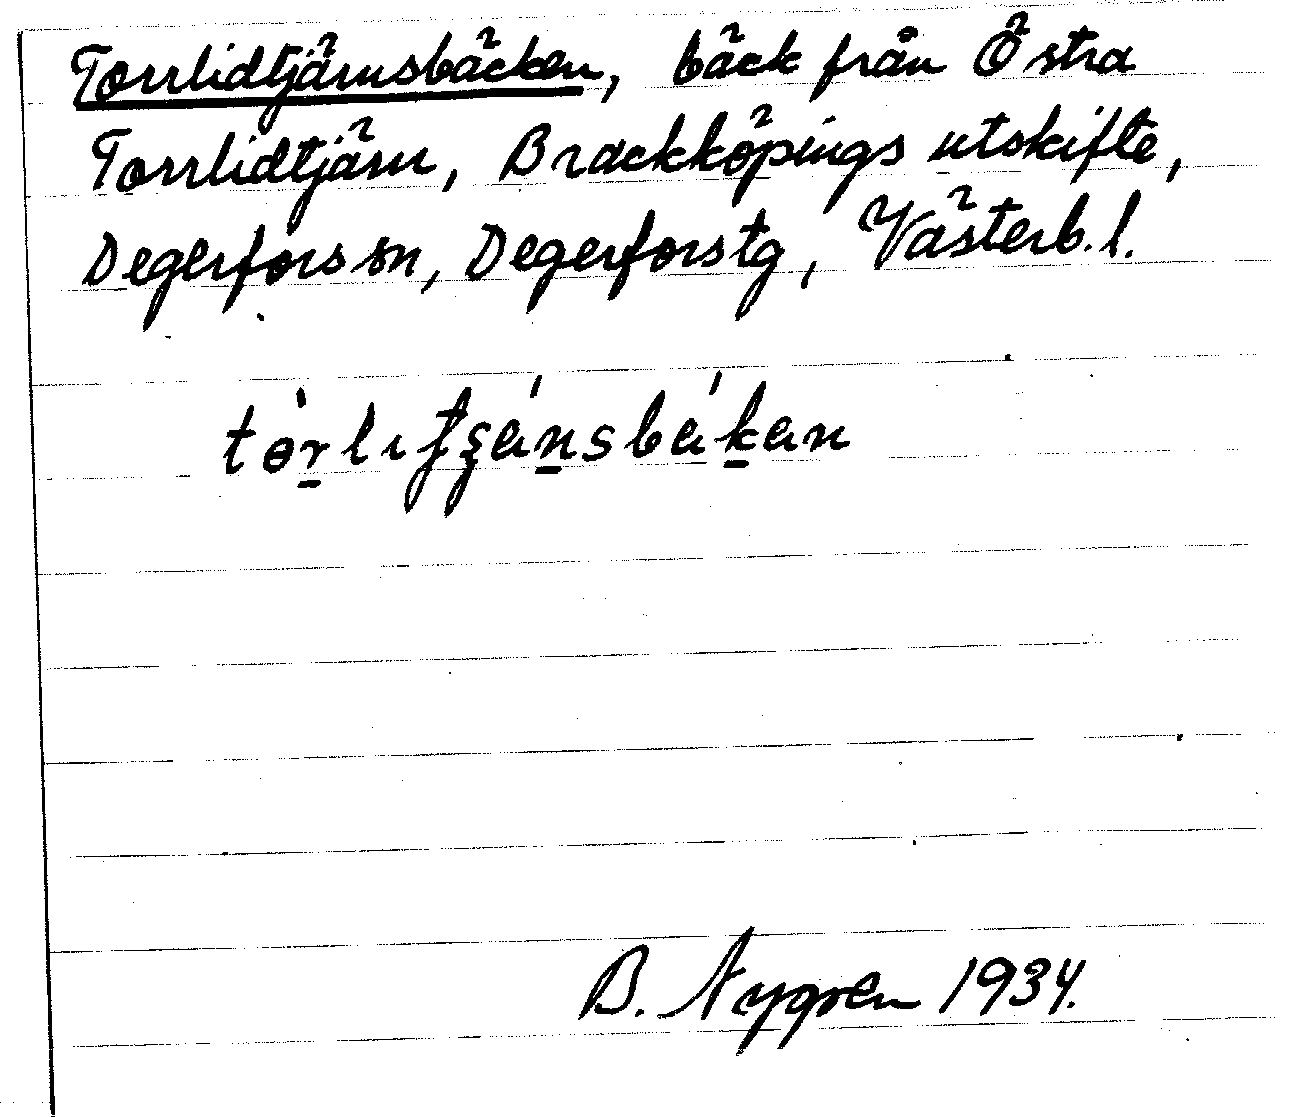 Torrlidtjärnsbäcken, bäck från Östra
Torrlidtjärn, Brackköpings utskifte,
Degerfors sn, Degerfors tg, Västerb. l.
B. Nygren 1934.